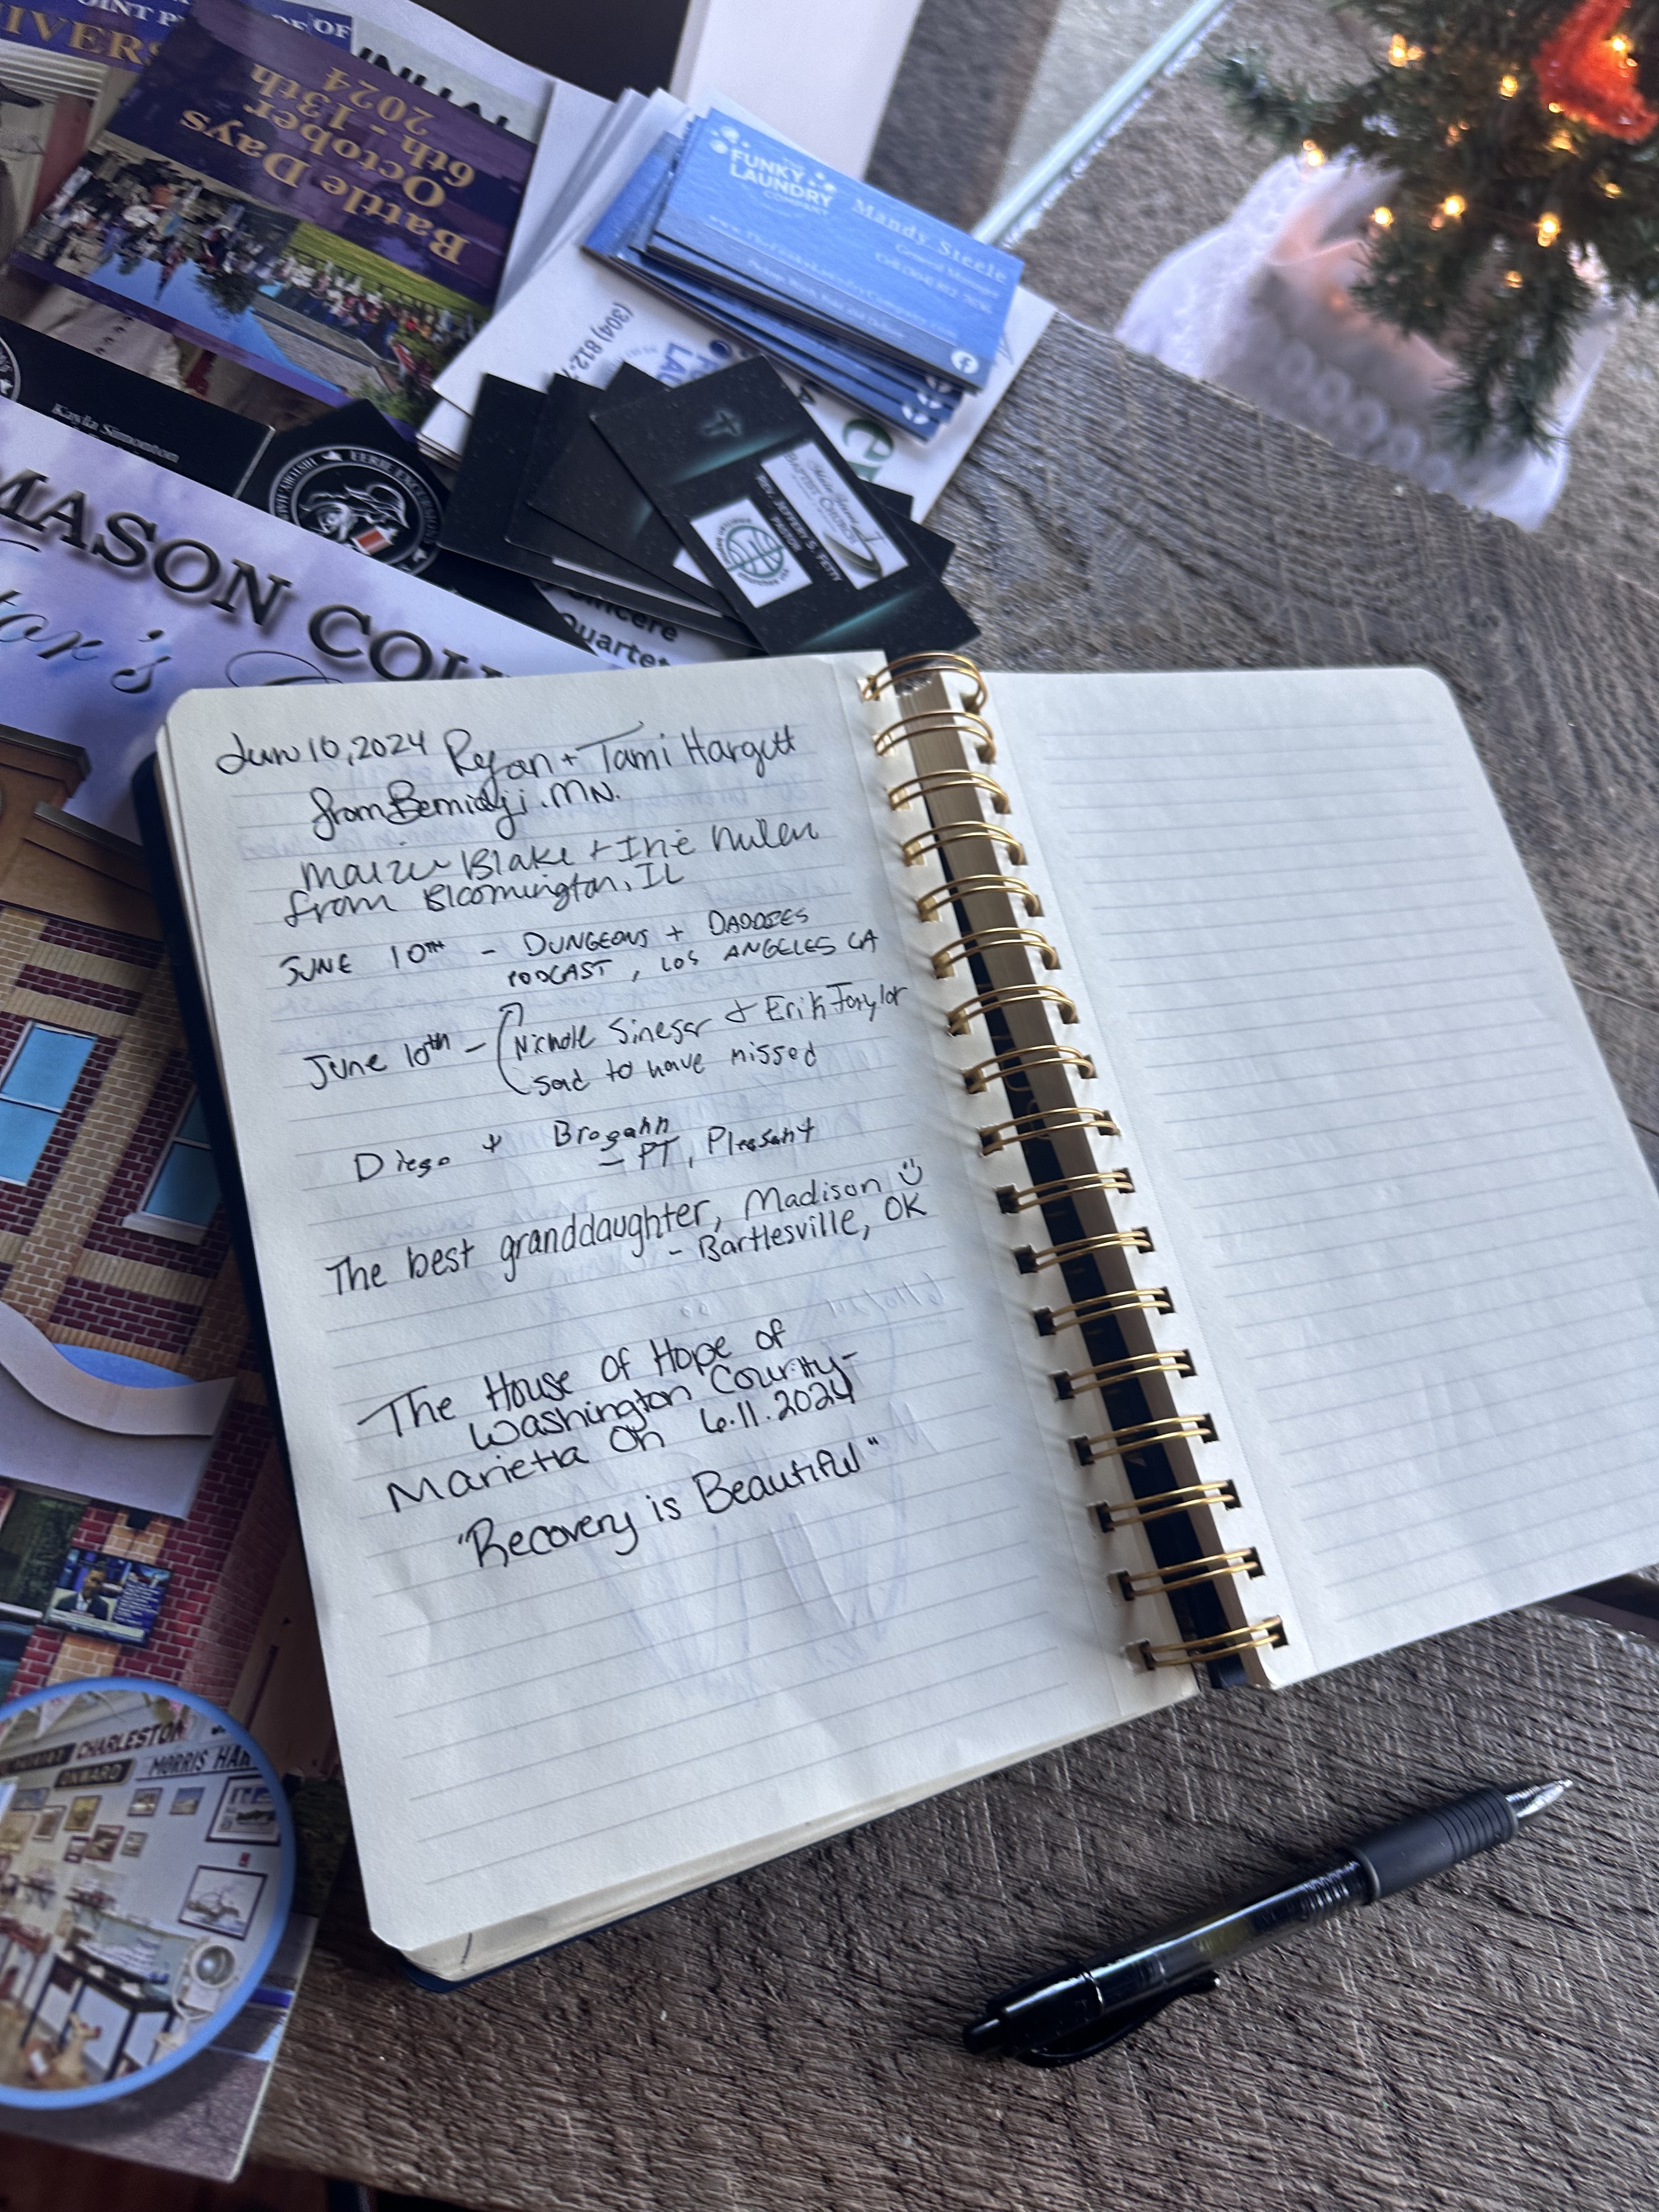 POINT P
OF OF
IVERS
Battle Days
October
6th - 13th
2024
FUNKY
LAUNDRY
COMPANY
Mandy Steele
General Manager
(304) 812-7
Kayla Simonton
EERIE EXCURSIONS
BAPTIST CHURCH
REV. JEFFERY S. PETTY
PASTOR
Sincere
Quartet
MASON COU
tor's
June 10, 2024 Ryan + Tami Hargett
from Bemidji. MN.
Maizie Blake + Irie
from Bloomington, IL
JUNE 10TH - DUNGEONS + DADDIES
PODCAST, LOS ANGELES CA
June 10th - Nichole & Erik Taylor
sad to have missed
Diego + Brogahn
- PT, Pleasant
The best granddaughter, Madison
- Bartlesville, OK
The House of Hope of
Washington County-
Marietta Oh 6.11.2024
"Recovery is Beautiful"
CHARLESTON
ONWARD
MORRIS HAR